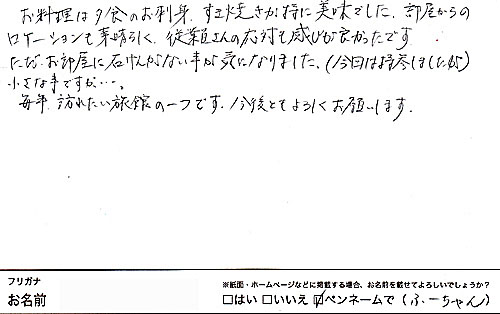 お料理は夕食のお刺身、すき焼きが特に美味でした。部屋からの
ロケーションも素晴らしく、従業員さんの応対も感じが良かったです
ただ、お部屋に石けんがない事が気になりました、(今回は持参しましたが)
小さな事ですが…。
毎年、訪れたい旅館の一つです。今後ともよろしくお願いします。
フリガナ
お名前
※紙面・ホームページなどに掲載する場合、お名前を載せてよろしいでしょうか?
□はい □いいえ ☑ペンネームで (ふーちゃん)